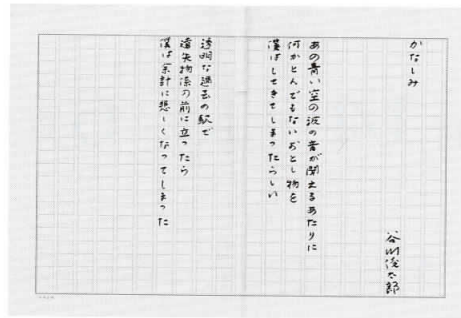 かなしみ
谷川俊太郎
あの青い空の波の音が聞えるあたりに
何かとんでもないおとし物を
僕はしてきてしまったらしい
透明な過去の駅で
遺失物係の前に立ったら
僕は余計に悲しくなってしまった